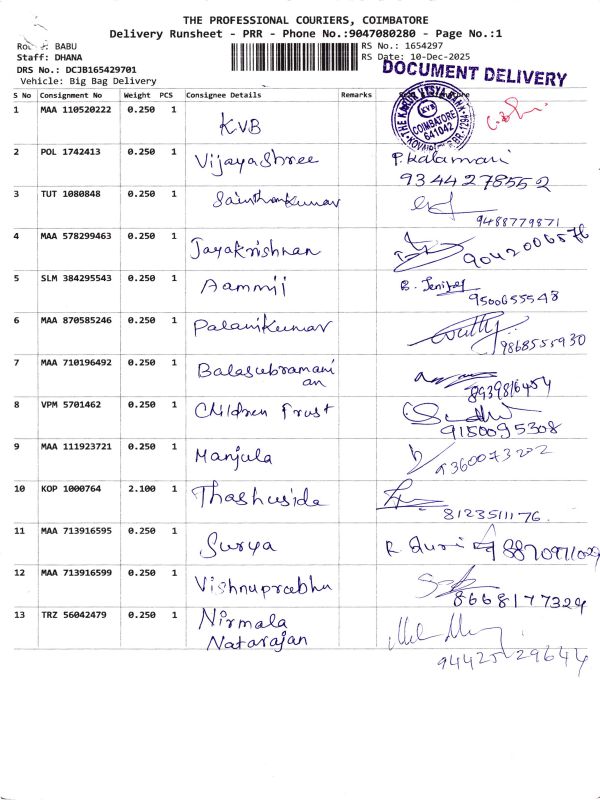 THE PROFESSIONAL COURIERS, COIMBATORE
Delivery Runsheet - PRR - Phone No.:9047080280 - Page No.:1
BABU
RS No.: 1654297
Staff: DHANA
RS Date: 10-Dec-2025
DRS No.: DCJB165429701
DOCUMENT DELIVERY
Vehicle: Big Bag Delivery
S No Consignment No Weight PCS Consignee Details Remarks
1 MAA 110520222 0.250 1 KVB
KVB COIMBATORE 641042
2 POL 1742413 0.250 1 Vijayashree P. Kalamani
9344278552
3 TUT 1080848 0.250 1
9488779871
4 MAA 578299463 0.250 1 Jayakrishnan 9042006576
5 SLM 384295543 0.250 1 Aammii B. Jenifer
9500655548
6 MAA 870585246 0.250 1 Palanikumar
9868555930
7 MAA 710196492 0.250 1 Balasubramani
an 8939816454
8 VPM 5701462 0.250 1 Children Trust
9150095308
9 MAA 111923721 0.250 1 Manjula 9360073202
10 KOP 1000764 2.100 1 Thashuside
8123511176.
11 MAA 713916595 0.250 1 Surya
12 MAA 713916599 0.250 1 Vishnuprabhu
8668177329
13 TRZ 56042479 0.250 1 Nirmala
Natarajan
94425 29644